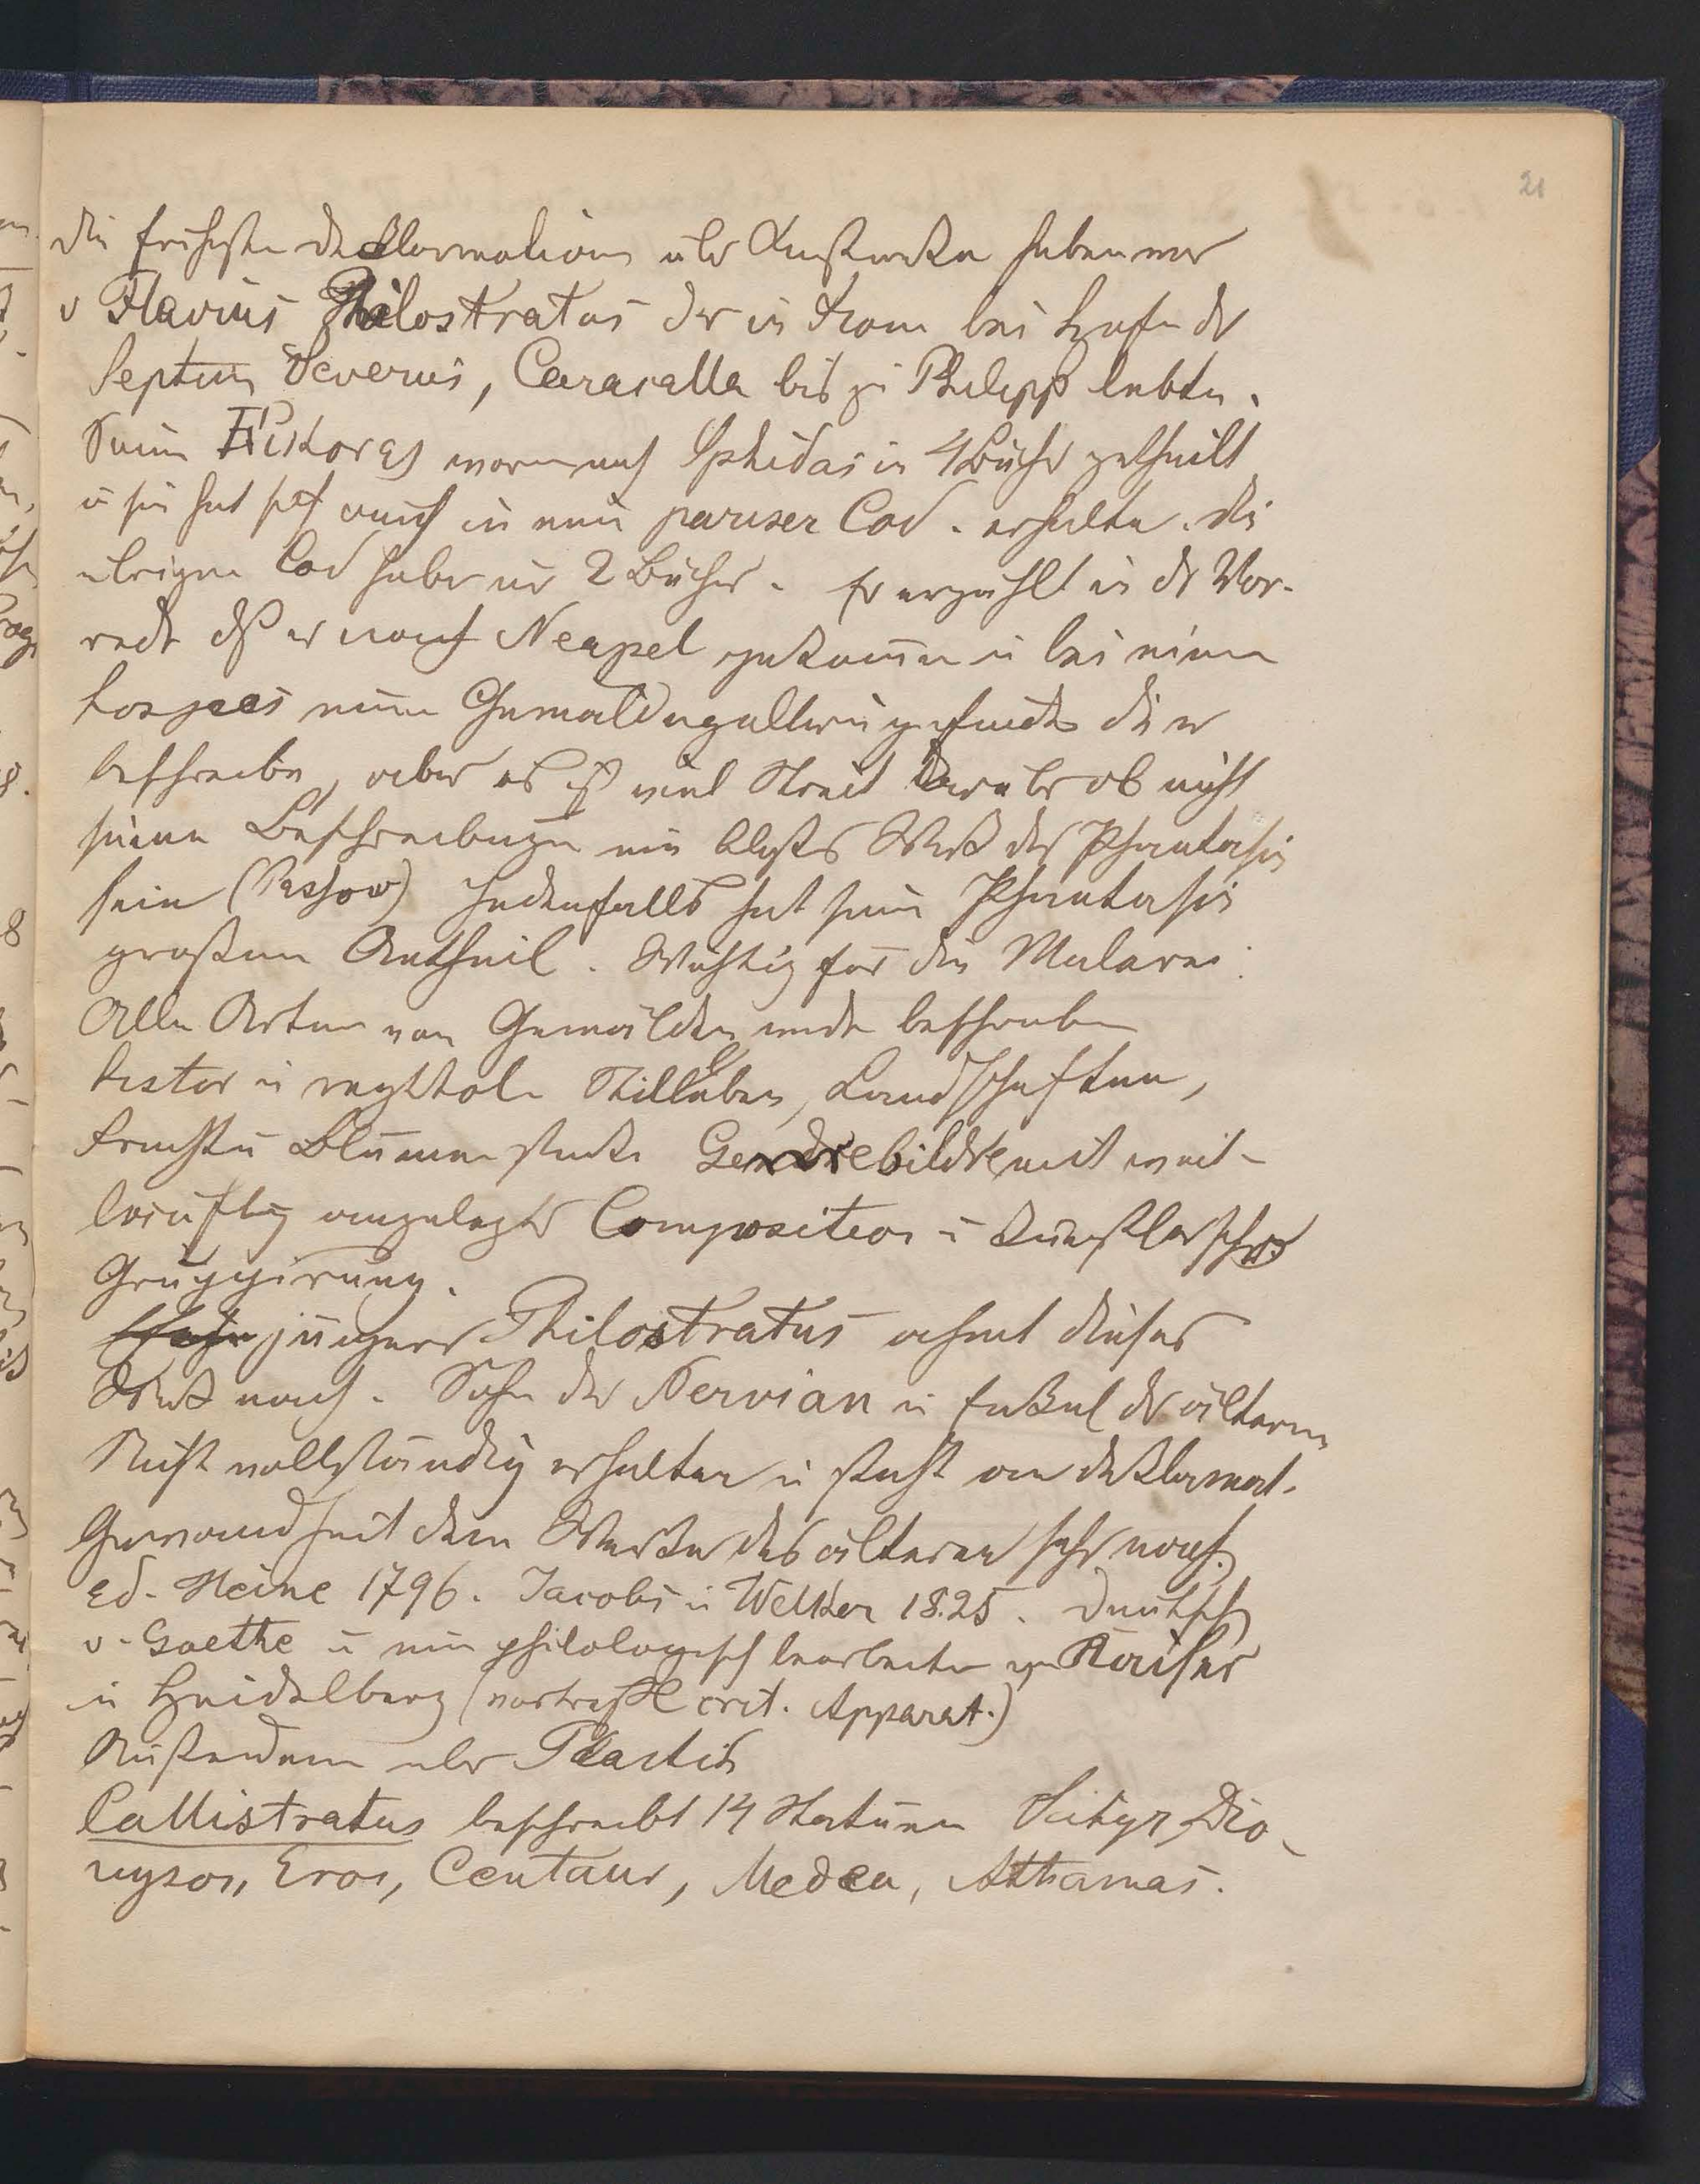 21
Die früheste Deklamation über Kunstwerke haben wir
v Flavius Philostratus der in Rom bei Hofe der
Septim Severus, Caracalla bis zu Philipp lebte.
Seine waren nach in 4 Bücher getheilt
u sie hat sich auch in eine pariser Cod. erhalte. die
übrigen Cod habe nur 2 Bücher. Er erzählt in dr Vor-
rede dß er nach Neapel gekomen u bei einem
hospes eine Gemäldegallerie gefunde die er
beschreibe, aber es ist viel Streit darüber ob nicht
seine Beschreibungen ein bloßes Werk der Phantasie
sein (Passow) Jedenfalls hat seine Phantasie
großen Antheil. Wichtig für die Malerei.
Alle Arten von Gemälden werde beschrieben
histor u mythol. Stillleben, Landschaften,
Frucht u Blumenstücke Genrebilder mit weit-
läuftig angelegter Composition u künstlerischer
Gruppirung.
jüngerer Philostratus ahmt dieses
Werk nach. Sohn der Nervian u Enkel dr älteren
Nicht vollständig erhalten u steht an deklamat.
Gewandheit dem Werke des älteren sehr nach.
ed. Heine 1796. Jacobs u Welker 1825. Deutsch
v. Goethe u neu philologisch bearbeitet v Kaiser
in Heidelberg (vortreffl crit. Apparat.)
Außerdem über Plastik
Callistratus beschreibt 14 Statuen Satyr, Dio-
nysos, Eros, Centaur, Medea, Athamas.